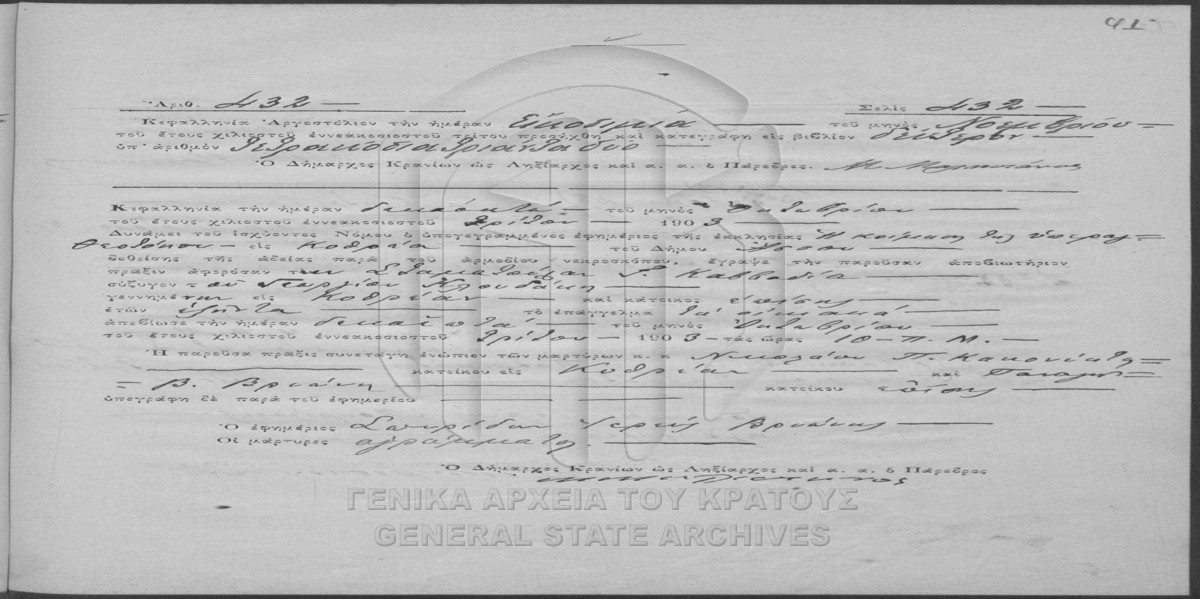 Ἀριθ. 432 — Σελὶς 432 —
Κεφαλληνία Ἀργοστόλιον τὴν ἡμέραν Εἴκοσι μιᾷ — τοῦ μηνὸς Νοεμβρίου =
τοῦ ἔτους χιλιοστοῦ ἐννεακοσιοστοῦ τρίτου προσήχθη καὶ κατεγράφη εἰς βιβλίον δεύτερον —
ὑπ' ἀριθμὸν τετρακόσια τριάντα δύο —
Ὁ Δήμαρχος Κρανίων ὡς Ληξίαρχος καὶ α. α. ὁ Πάρεδρος. Μ
Κεφαλληνία τὴν ἡμέραν — τοῦ μηνὸς Ὀκτωβρίου —
τοῦ ἔτους χιλιοστοῦ ἐννεακοσιοστοῦ τρίτου — 1903 —
Δυνάμει τοῦ ἰσχύοντος Νόμου ὁ ὑπογεγραμμένος ἐφημέριος τῆς ἐκκλησίας Ἡ κοίμησις τῆς ὑπεραγ=
Θεοτόκου — εἰς Κοθρέα — τοῦ Δήμου —
δοθείσης τῆς ἀδείας παρὰ τοῦ ἁρμοδίου νεκροσκόπου, ἔγραψε τὴν παροῦσαν ἀποβιωτήριον
πρᾶξιν ἀφορῶσαν τὴν Σταματούλαν Καββαδία —
σύζυγον τοῦ Γεωργίου —
γεννημένην εἰς Κοθρέαν — καὶ κάτοικος ἐπίσης —
ἐτῶν ἑξῆντα — τὸ ἐπάγγελμα τὰ οἰκιακά —
ἀπεβίωσε τὴν ἡμέραν δεκαεπτά — τοῦ μηνὸς Ὀκτωβρίου —
τοῦ ἔτους χιλιοστοῦ ἐννεακοσιοστοῦ τρίτου — 1903 — τὰς ὥρας 10 — π. μ. —
Ἡ παροῦσα πρᾶξις συνετάγη ἐνώπιον τῶν μαρτύρων κ. κ Νικολάου Π.
κατοίκου εἰς Κοθρέαν — καὶ
= Β. — κατοίκου ἐπίσης —
ὑπεγράφη δὲ παρὰ τοῦ ἐφημερίου —
Ὁ ἐφημέριος Σπυρίδων Ἱερεύς —
Οἱ μάρτυρες ἀγράμματοι. —
Ὁ Δήμαρχος Κρανίων ὡς Ληξίαρχος καὶ α. α. ὁ Πάρεδρος
ΓΕΝΙΚΑ ΑΡΧΕΙΑ ΤΟΥ ΚΡΑΤΟΥΣ
GENERAL STATE ARCHIVES